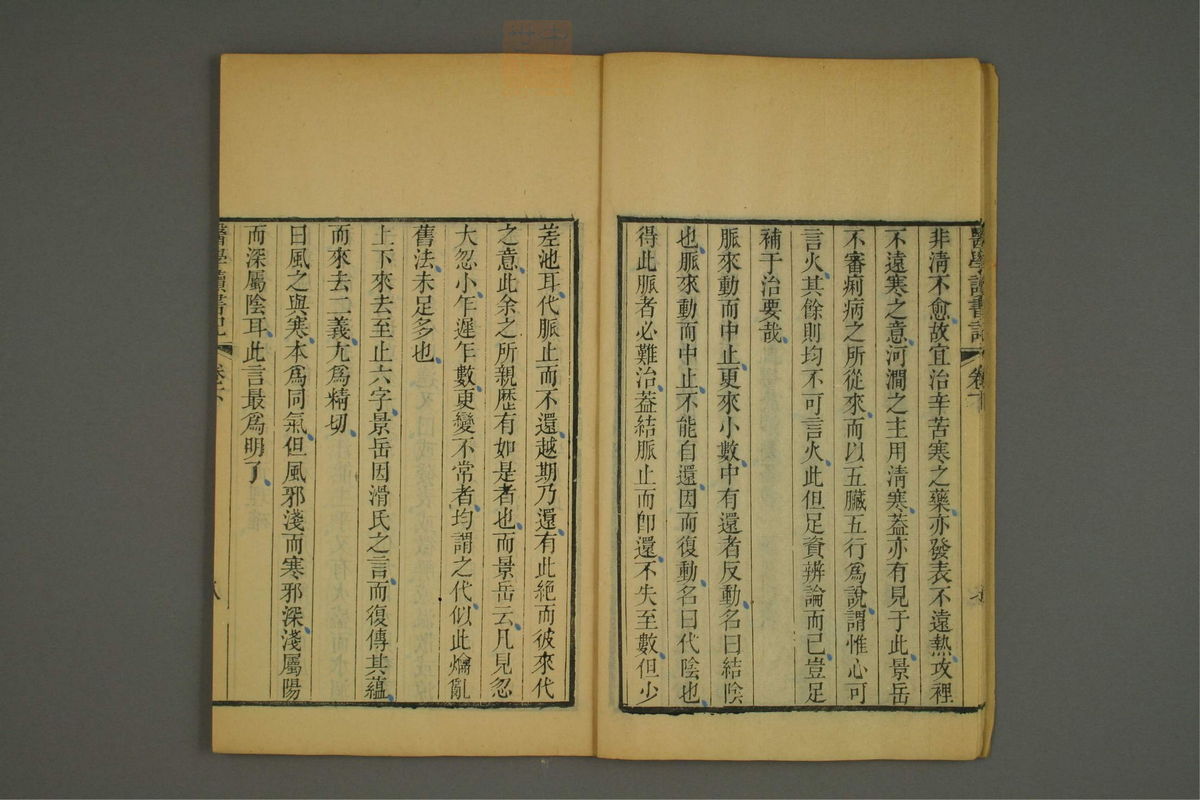 醫學讀書記 卷下
非淸不愈故宜治辛苦寒之藥亦發表不遠熱攻裡
不遠寒之意河澗之主用淸寒葢亦有見于此景岳
不審痢病之所從來而以五臟五行爲說謂惟心可
言火其餘則均不可言火此但足資辨論而已豈足
補于治要哉
脈來動而中止更來小數中有還者反動名曰結陰
也脈來動而中止不能自還因而復動名曰代陰也
得此脈者必難治葢結脈止而卽還不失至數但少
差池耳代脈止而不還越期乃還有此絕而彼來代
之意此余之所親歷有如是者也而景岳云凡見忽
大忽小乍遲乍數更變不常者均謂之代似此爚亂
舊法未足多也
上下來去至止六字景岳因滑氏之言而復傳其蘊
而來去二義尤爲精切
曰風之與寒本爲同氣但風邪淺而寒邪深淺屬陽
而深屬陰耳此言最爲明了
醫學讀書記 卷下 八